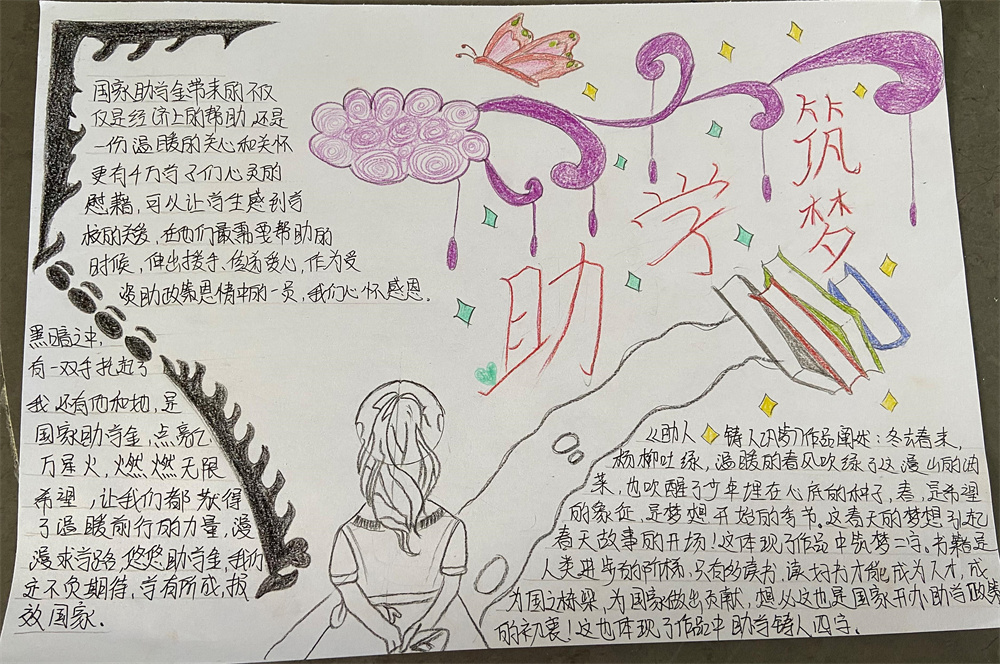 国家助学金带来的不仅
仅是经济上的帮助,还是
一份温暖的关心和关怀
更有千万学子们心灵的
慰藉,可以让学生感到学
校的关爱,在他们最需要帮助的
时候,伸出援手、传递爱心,作为受
资助政策恩情中的一员,我们心怀感恩.
黑暗之中,
有一双手扎起了
我还有他和她,是
国家助学金,点亮亿
万星火,燃燃无限
希望,让我们都获得
了温暖前行的力量,漫
漫求学路,悠悠助学金,我们
定不负期待,学有所成,报
效国家.
助学
筑梦
《助人铸人 作品阐述:冬去春来,
杨柳吐绿,温暖的春风吹绿了这漫山的油
菜,也吹醒了少年埋在心底的种子,春,是希望
的象征,是梦想开始的季节。这春天的梦想引起
春天故事的开场!这体现了作品中筑梦二字。书籍是
人类进步的阶梯,只有多读书,读好书才能成为人才,成
为国之栋梁,为国家做出贡献,想必这也是国家开办助学政策
的初衷!这也体现了作品中助学铸人四字.